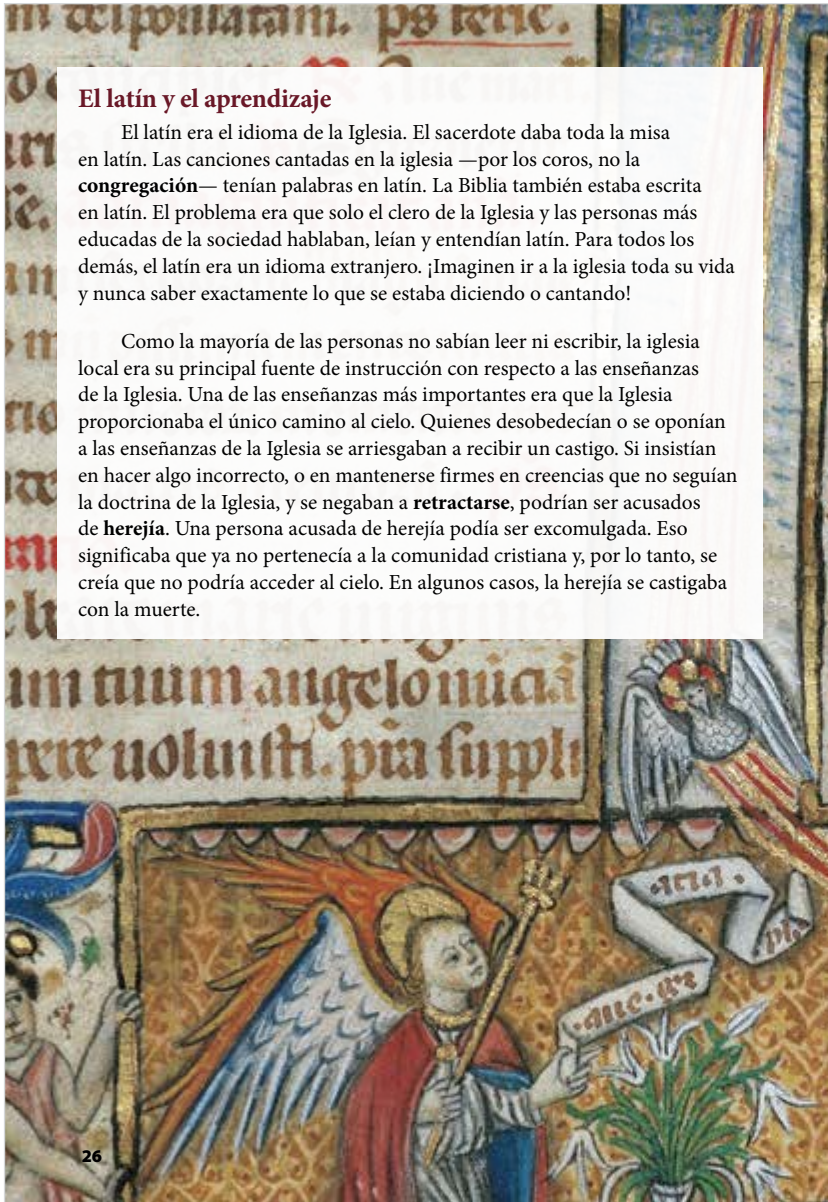 m desponsatam. ps
El latín y el aprendizaje
El latín era el idioma de la Iglesia. El sacerdote daba toda la misa
en latín. Las canciones cantadas en la iglesia —por los coros, no la
congregación— tenían palabras en latín. La Biblia también estaba escrita
en latín. El problema era que solo el clero de la Iglesia y las personas más
educadas de la sociedad hablaban, leían y entendían latín. Para todos los
demás, el latín era un idioma extranjero. ¡Imaginen ir a la iglesia toda su vida
y nunca saber exactamente lo que se estaba diciendo o cantando!
Como la mayoría de las personas no sabían leer ni escribir, la iglesia
local era su principal fuente de instrucción con respecto a las enseñanzas
de la Iglesia. Una de las enseñanzas más importantes era que la Iglesia
proporcionaba el único camino al cielo. Quienes desobedecían o se oponían
a las enseñanzas de la Iglesia se arriesgaban a recibir un castigo. Si insistían
en hacer algo incorrecto, o en mantenerse firmes en creencias que no seguían
la doctrina de la Iglesia, y se negaban a retractarse, podrían ser acusados
de herejía. Una persona acusada de herejía podía ser excomulgada. Eso
significaba que ya no pertenecía a la comunidad cristiana y, por lo tanto, se
creía que no podría acceder al cielo. En algunos casos, la herejía se castigaba
con la muerte.
um tuum angelo
uoluisti. pia suppli
aue
26